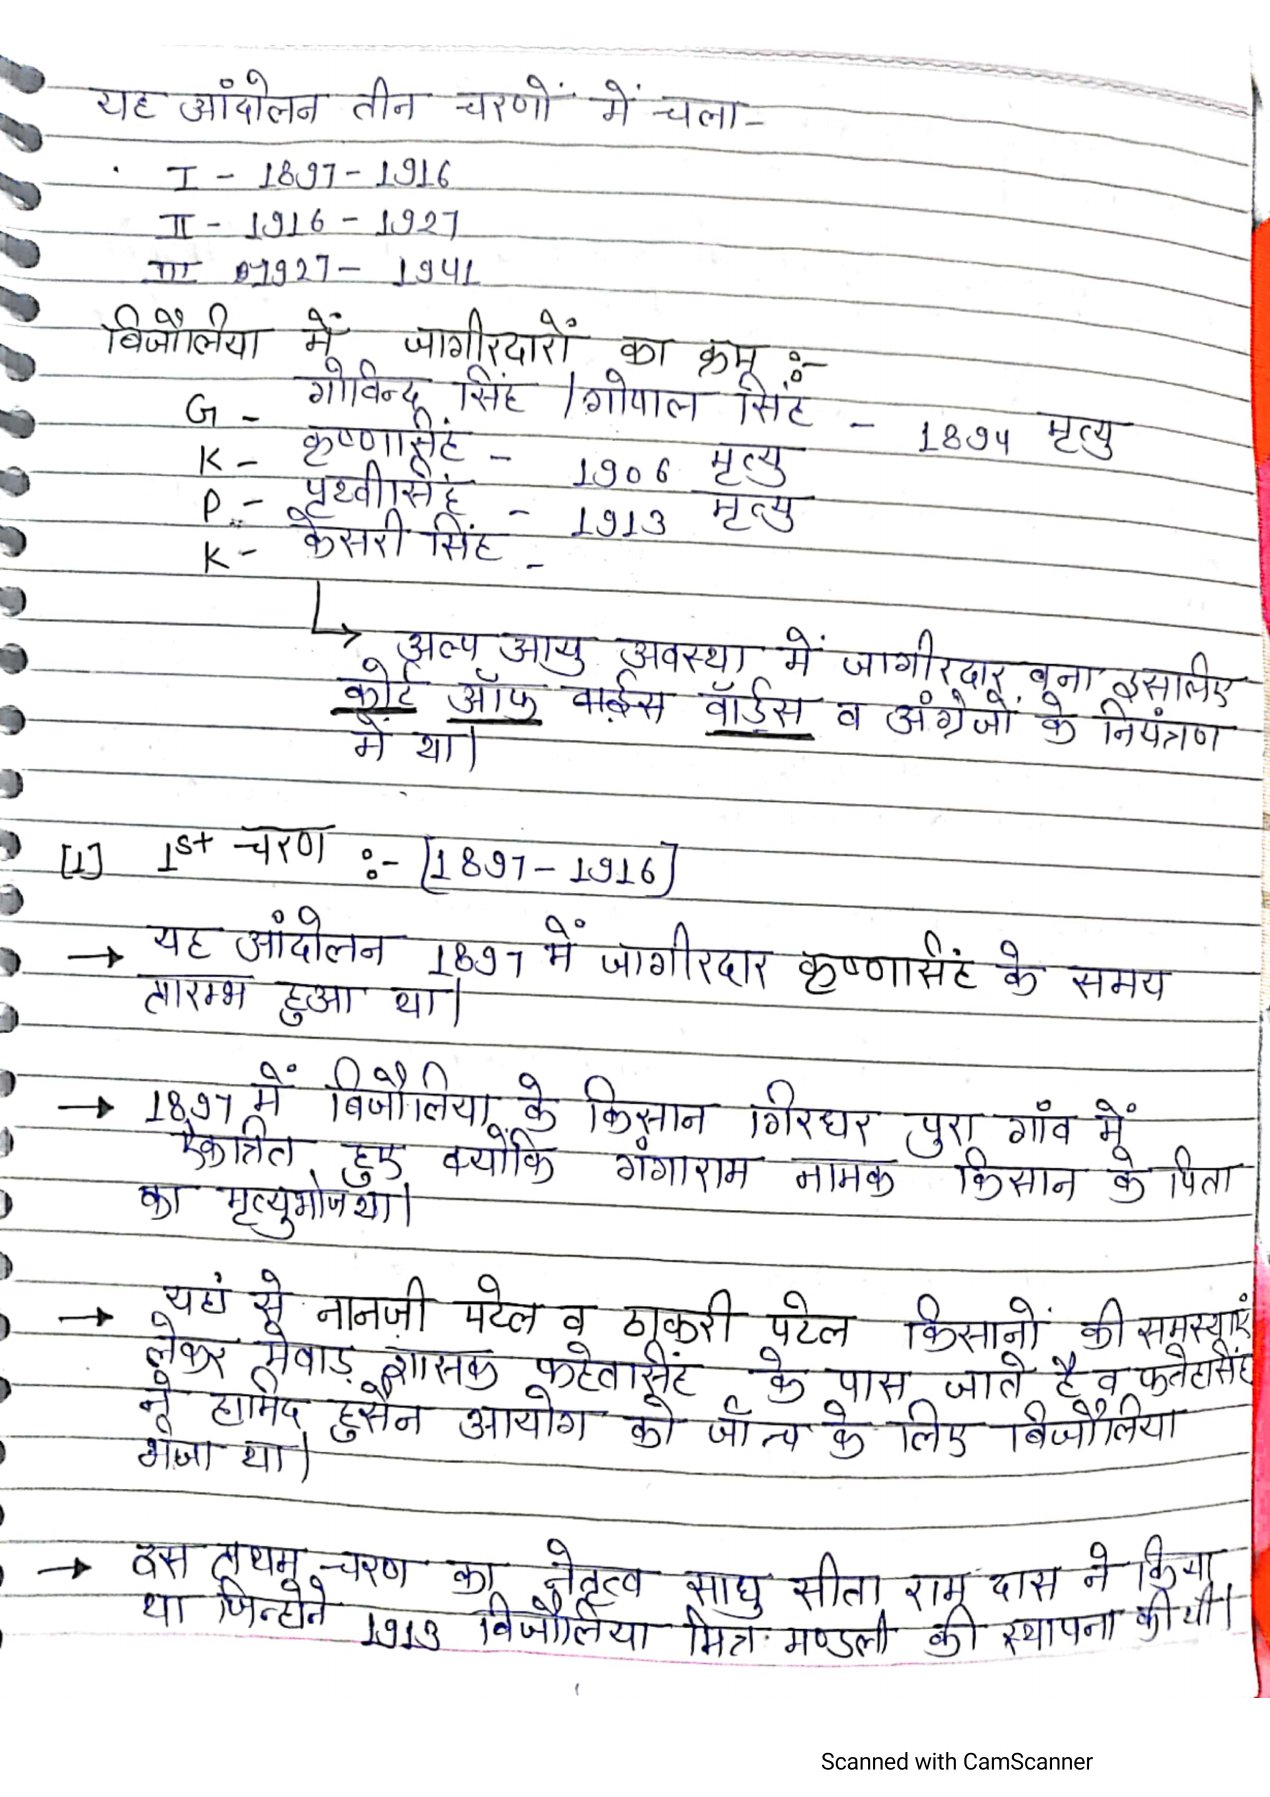 यह आंदोलन तीन चरणों में चला-
I - 1897 - 1916
II - 1916 - 1927
III 1927 - 1941
बिजौलिया में जागीरदारों का क्रम :-
G - गोविन्द सिंह / गोपाल सिंह - 1894 मृत्यु
K - कृष्णासिंह - 1906 मृत्यु
P - पृथ्वीसिंह - 1913 मृत्यु
K - केसरी सिंह -
अल्प आयु अवस्था में जागीरदार बना इसलिए
कोर्ट ऑफ वार्ड्स व अंग्रेजों के नियंत्रण
में था।
[1] 1st चरण :- [1897 - 1916]
→ यह आंदोलन 1897 में जागीरदार कृष्णासिंह के समय
प्रारम्भ हुआ था।
→ 1897 में बिजौलिया के किसान गिरधर पुरा गाँव में
एकत्रित हुए क्योंकि गंगाराम नामक किसान के पिता
का मृत्युभोज था।
→ यहां से नानजी पटेल व ठाकरी पटेल किसानों की समस्याएं
लेकर मेवाड़ शासक फतेहसिंह के पास जाते है व फतेहसिंह
ने हामिद हुसैन आयोग को जाँच के लिए बिजौलिया
भेजा था।
→ इस प्रथम चरण का नेतृत्व साधु सीता राम दास ने किया
था जिन्होने 1913 बिजौलिया मित्र मण्डली की स्थापना की थी।
Scanned with CamScanner